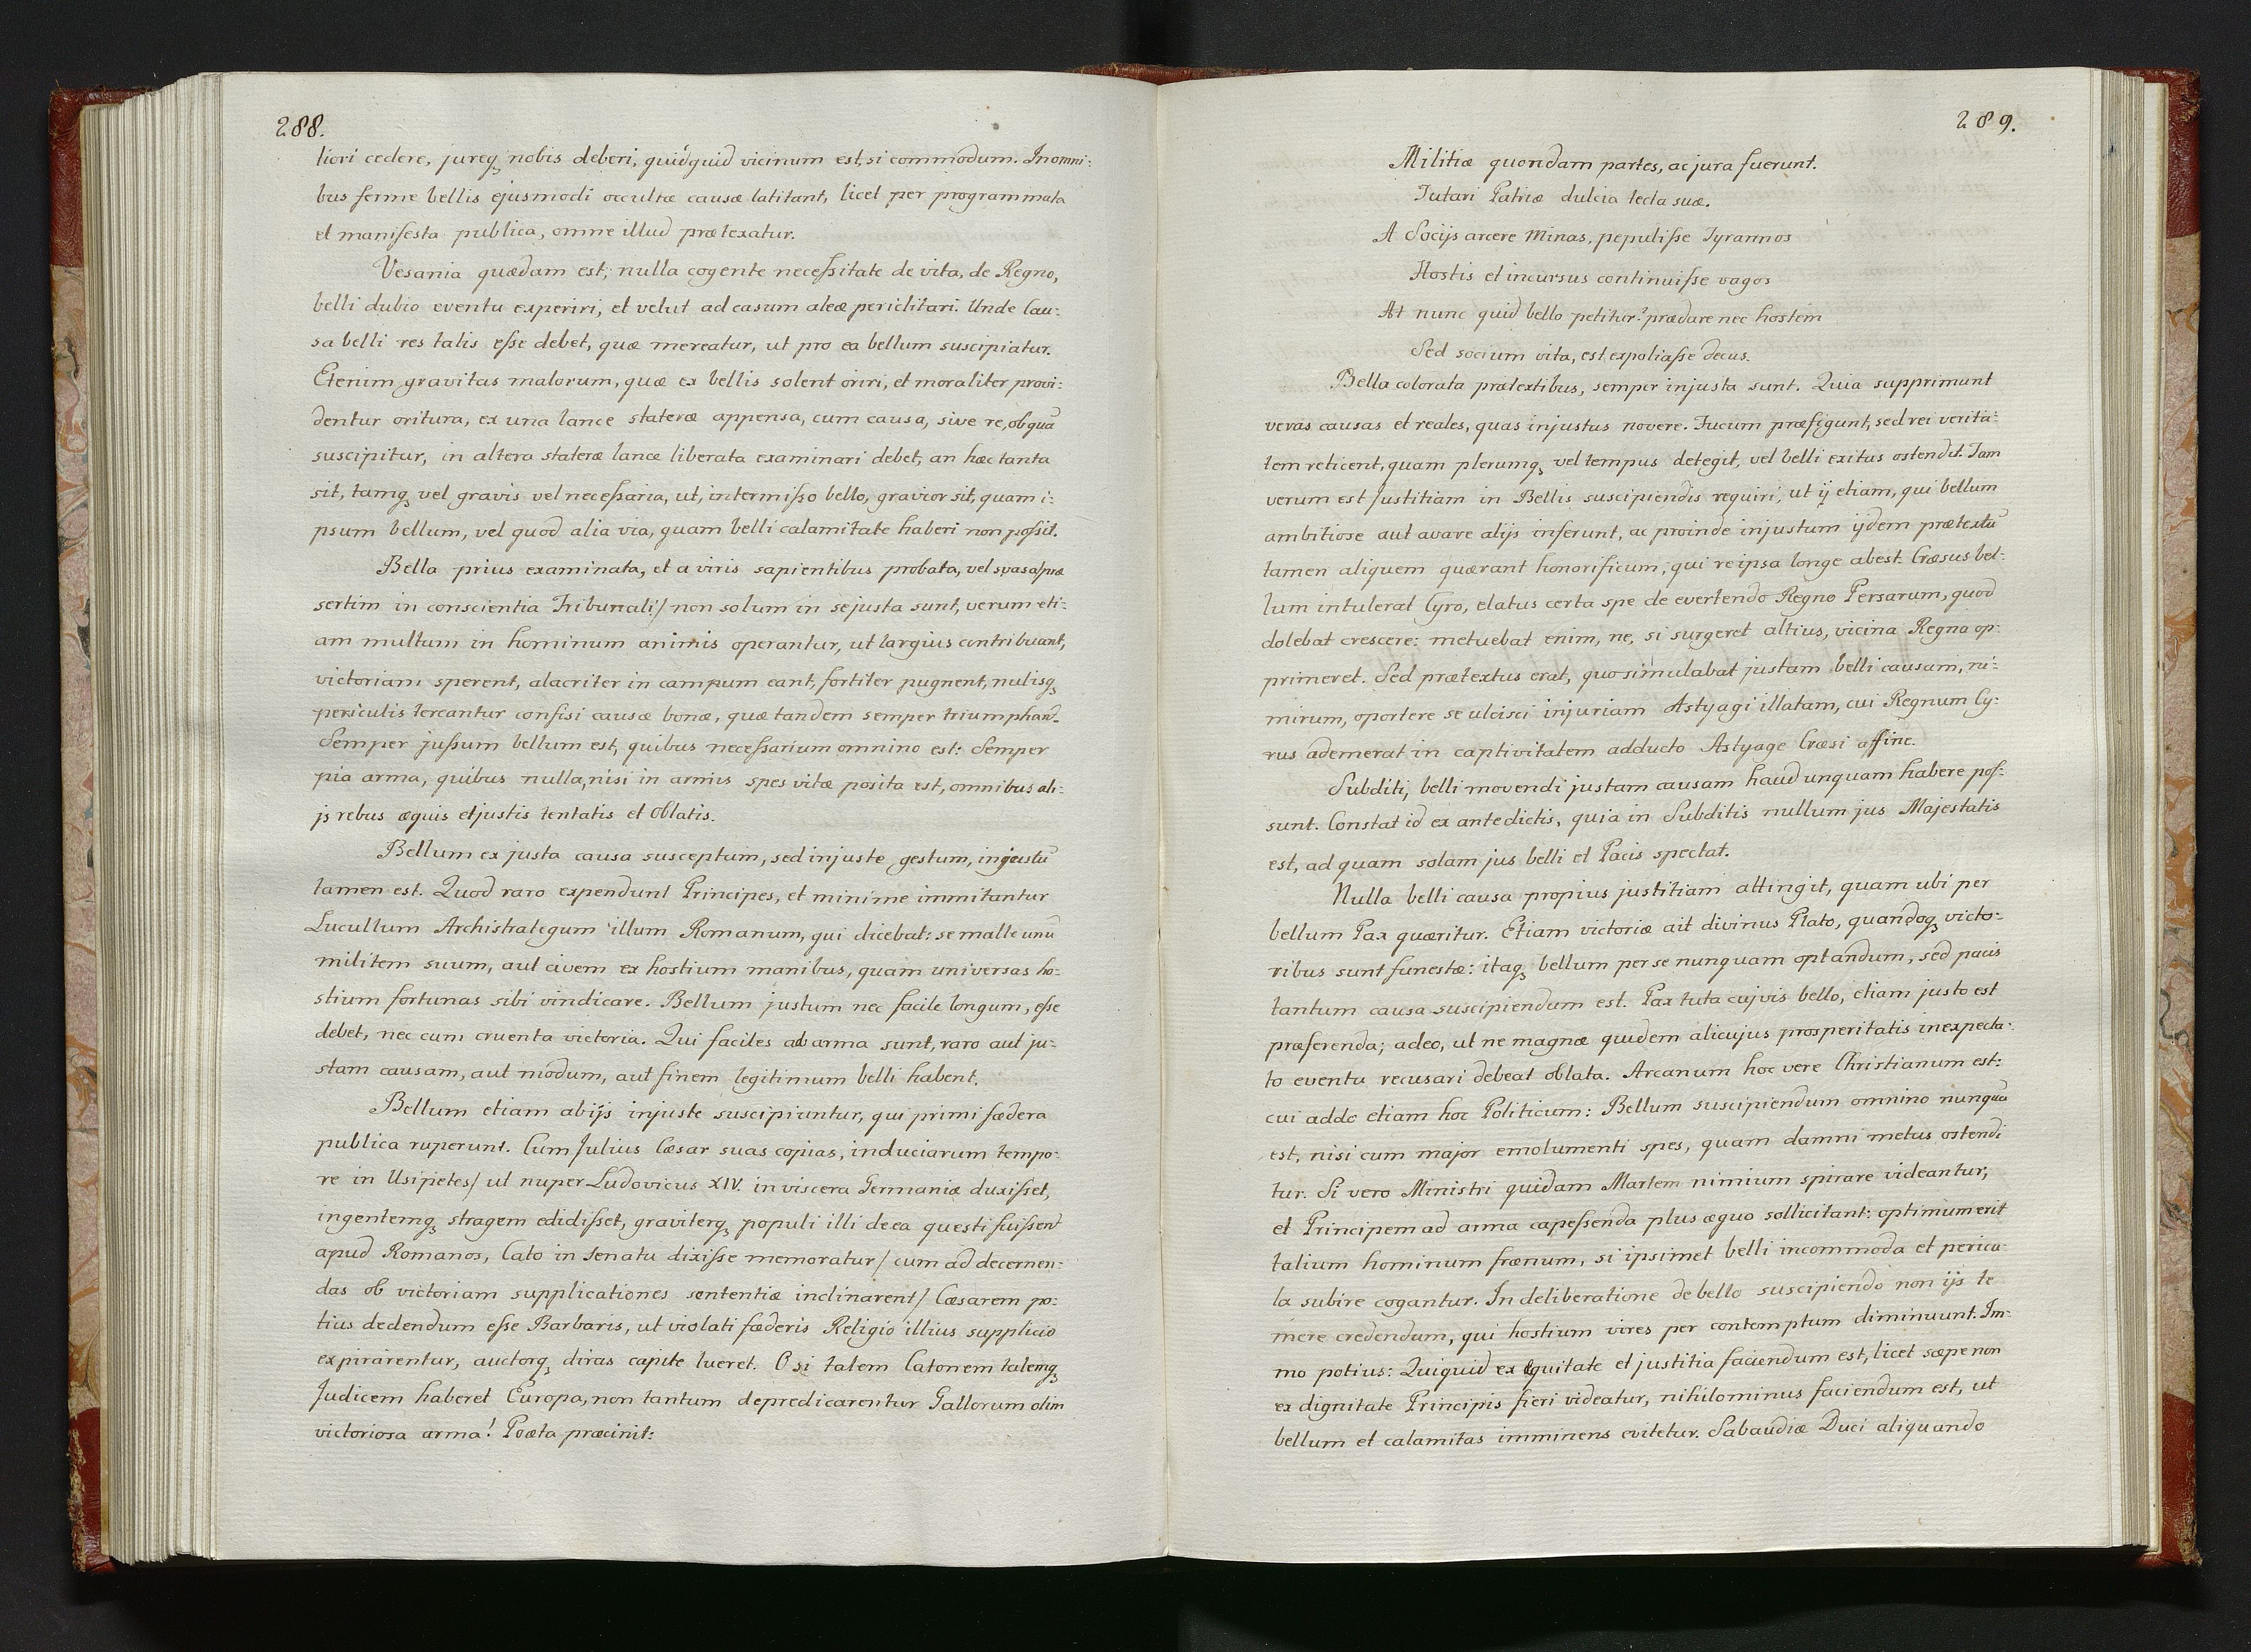 288.
tiori cedere, jureq₃ nobis deberi, quidquid vicinum est, si commodum. In omni:
bus ferme bellis ejusmodi occultæ causæ latitant, licet per programmata
et manifesta publica, omne illud prætexatur.
Vesania quædam est, nulla cogente necessitate de vita, de Regno,
belli dubio eventu experiri, et velut ad casum aleæ periclitari. Unde Cau:
sa belli res talis esse debet, quæ mereatur, ut pro ea bellum suscipiatur.
Etenim gravitas malorum, quæ ex bellis solent oriri, et moraliter provi:
dentur oritura, ex una lance stateræ appensa, cum causa, sive re, ob quā
suscipitur, in altera stateræ lance liberata examinari debet, an hæc tanta
sit, tamq₃ vel gravis vel necessaria, ut, intermisso bello, gravior sit, quam i:
psum bellum, vel quod alia via, quam belli calamitate haberi non possit.
Bella prius examinata, et a viris sapientibus probata, vel svasa/præ
sertim in conscientia Tribunali/ non solum in se justa sunt, verum eti:
am multum in hominum animis operantur, ut largius contribuant,
victoriam sperent, alacriter in campum eant, fortiter pugnent, nulisq₃
periculis terreantur confisi causæ bonæ, quæ tandem semper triumphand.
Semper jussum bellum est, quibus necessarium omnino est: Semper
pia arma, quibus nulla, nisi in armis spes vitæ posita est, omnibus ali:
js rebus æquis et justis tentatis et oblatis.
Bellum ex justa causa susceptum, sed injuste gestum, injustū
tamen est. Quod raro expendunt Principes, et minime immitantur
Lucullum Archistrategum illum Romanum, qui dicebat: se malle unū
militem suum, aut civem ex hostium manibus, quam universas ho:
stium fortunas sibi vindicare. Bellum justum nec facile longum, esse
debet, nec cum cruenta victoria. Qui faciles ad arma sunt, raro aut ju:
stam causam, aut modum, aut finem legitimum belli habent.
Bellum etiam ab ijs injuste suscipiuntur, qui primi fædera
publica ruperunt. Cum Julius Cæsar suas copias, induciarum tempo:
re in Usipetes/ ut nuper Ludovicus XIV. in viscera Germaniæ duxisset,
ingentemq₃ stragem edidisset, graviterq₃ populi illi de ea questi fuissent
apud Romanos, Cato in Senatu dixisse memoratur/ cum ad decernen:
das ob victoriam supplicationes sententiæ inclinarent/ Cæsarem po:
tius dedendum esse Barbaris, ut violati fæderis Religio illius supplicio
expirarentur, auctorq₃ diras capite lueret. O si talem Catonem talemq₃
Judicem haberet Europa, non tantum depredicarentur Gallorum olim
victoriosa arma! Poæta præcinit:
289.
Militiæ quondam partes, ac jura fuerunt.
Tutari Patriæ dulcia tecta suæ.
A Socijs arcere Minas, pepulisse Tyrannos
Hostis et incursus continuisse vagos
At nunc quid bello petitur? prædare nec hostem
Sed socium vita, est expoliasse decus.
Bella colorata prætextibus, semper injusta sunt. Quia supprimunt
veras causas et reales, quas injustas novere. Fucum præfigunt, sed rei verita:
tem reticent, quam plerumq₃ vel tempus detegit, vel belli exitus ostendit. Tam
verum est Justitiam in Bellis suscipiendis requiri, ut ij etiam, qui bellum
ambitiose aut avare alijs inferunt, ac proinde injustum ijdem prætextū
tamen aliquem quærant honorificum, qui re ipsa longe abest. Cræsus bel:
lum intulerat Cyro, elatus certa spe de evertendo Regno Persarum, quod
dolebat crescere: metuebat enim, ne, si surgeret altius, vicina Regna op:
primeret. Sed prætextus erat, quo simulabat justam belli causam, ni:
mirum, oportere se ulcisci injuriam Astyagi illatam, cui Regnum Cy:
rus ademerat in captivitatem adducto Astyage Cræsi affine.
Subditi, belli movendi justam causam haud unquam habere pos:
sunt. Constat id ex antedictis, quia in Subditis nullum jus Majestatis
est, ad quam solam jus belli et Pacis spectat.
Nulla belli causa propius justitiam attingit, quam ubi per
bellum Pax quæritur. Etiam victoriæ ait divinus Plato, quandoq₃ victo:
ribus sunt funestæ: itaq₃ bellum per se nunquam optandum, sed pacis
tantum causa suscipiendum est. Pax tuta cujvis bello, etiam justo est
præferenda; adeo, ut ne magnæ quidem alicujus prosperitatis inexpecta:
to eventu recusari debeat oblata. Arcanum hoc vere Christianum est:
cui addo etiam hoc Politicum: Bellum suscipiendum omnino nunquā
est, nisi cum major emolumenti spes, quam damni metus ostendi
tur. Si vero Ministri quidam Martem nimium spirare videantur,
et Principem ad arma capessenda plus æquo sollicitant: optimum erit
talium hominum frænum, si ipsimet belli incommoda et pericu:
la subire cogantur. In deliberatione de bello suscipiendo non ijs te
mere credendum, qui hostium vires per contemptum diminuunt. Im:
mo potius: Quiquid ex æquitate et justitia faciendum est, licet sæpe non
ex dignitate Principis fieri videatur, nihilominus faciendum est, ut
bellum et calamitas imminens evitetur. Sabaudiæ Duci aliquando